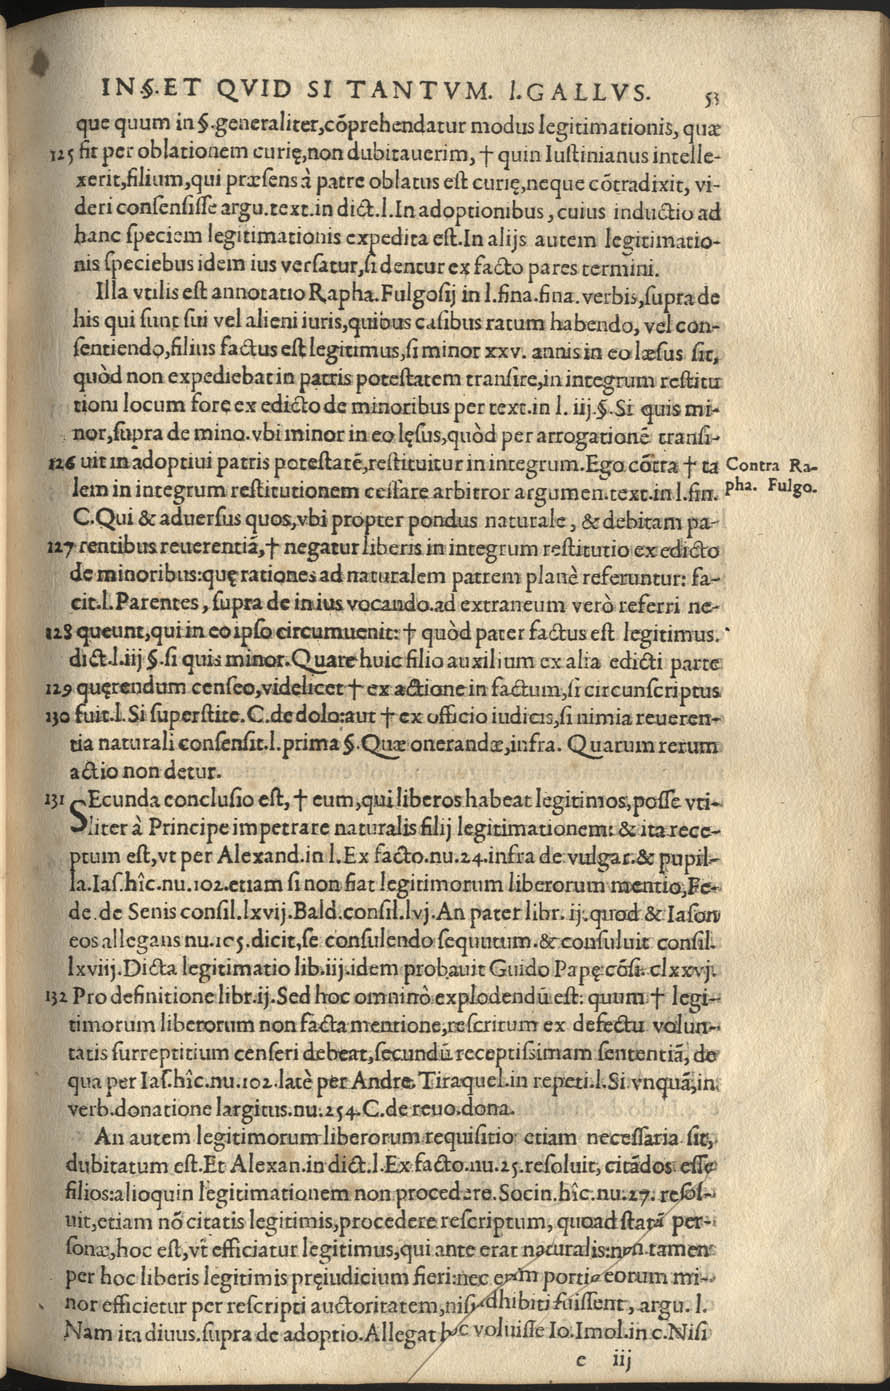 IN §. ET QVID SI TANTVM. l. GALLVS. 53
que quum in §. generaliter, cõprehendatur modus legitimationis, quæ
125 fit per oblationem curię, non dubitauerim, † quin Iustinianus intelle-
xerit, filium, qui præsens à patre oblatus est curię, neque cõtradixit, vi-
deri consensisse argu. text. in dict. l. In adoptionibus, cuius inductio ad
hanc speciem legitimationis expedita est. In alijs autem legitimatio-
nis speciebus idem ius versatur, si dentur ex facto pares termini.
Illa vtilis est annotatio Rapha. Fulgosij in l. fina. fina. verbis, supra de
his qui sunt sui vel alieni iuris, quibus casibus ratum habendo, vel con-
sentiendo, filius factus est legitimus, si minor xxv. annis in eo læsus sit,
quòd non expediebat in patris potestatem transire, in integrum restitu
tioni locum fore ex edicto de minoribus per text. in l. iij. §. Si quis mi-
nor, supra de mino. vbi minor in eo lęsus, quòd per arrogationẽ transi-
126 uit in adoptiui patris potestatẽ, restituitur in integrum. Ego cõtra † ta
Contra Ra-
pha. Fulgo.
lem in integrum restitutionem cessare arbitror argumen. text. in l. fin.
C. Qui & aduersus quos, vbi propter pondus naturale, & debitam pa-
127 rentibus reuerentiã, † negatur liberis in integrum restitutio ex edicto
de minoribus: quę rationes ad naturalem patrem planè referuntur: fa-
cit. l. Parentes, supra de in ius vocando. ad extraneum verò referri ne-
128 queunt, qui in eo ipso circumuenit: † quòd pater factus est legitimus.
dict. l. iij §. si quis minor. Quare huic filio auxilium ex alia edicti parte
129 quęrendum censeo, videlicet † ex actione in factum, si circunscriptus
130 fuit. l. Si superstite. C. de dolo: aut † ex officio iudicis, si nimia reueren-
tia naturali consensit. l. prima §. Quæ onerandæ, infra. Quarum rerum
actio non detur.
131 SEcunda conclusio est, † eum, qui liberos habeat legitimos, posse vti-
liter à Principe impetrare naturalis filij legitimationem: & ita rece-
ptum est, vt per Alexand. in l. Ex facto. nu. 24. infra de vulgar. & pupil-
la. Ias. hîc. nu. 102. etiam si non fiat legitimorum liberorum mentio, Fe-
de. de Senis consil. lxvij. Bald. consil. lvj. An pater libr. ij. quod & Iason
eos allegans nu. 105. dicit, se consulendo sequutum. & consuluit consil.
lxviij. Dicta legitimatio lib. iij. idem probauit Guido Papę cõsi. clxxvj.
132 Pro definitione libr. ij. Sed hoc omninò explodendũ est: quum † legi-
timorum liberorum non facta mentione, rescritum ex defectu volun-
tatis surreptitium censeri debeat, secundũ receptissimam sententiã, de
qua per Ias. hîc. nu. 102. latè per Andre. Tiraquel. in repeti. l. Si vnquã, in
verb. donatione largitus. nu. 254. C. de reuo. dona.
An autem legitimorum liberorum requisitio etiam necessaria sit,
dubitatum est. Et Alexan. in dict. l. Ex facto. nu. 25. resoluit, citãdos esse
filios: alioquin legitimationem non procedere. Socin. hîc. nu. 27. resol-
uit, etiam nõ citatis legitimis, procedere rescriptum, quoad statũ per-
sonæ, hoc est, vt efficiatur legitimus, qui ante erat naturalis: non tamen
per hoc liberis legitimis pręiudicium fieri: nec enim portio eorum mi-
nor efficietur per rescripti auctoritatem, nisi adhibiti fuissent, argu. l.
Nam ita diuus. supra de adoptio. Allegat hoc voluisse Io. Imol. in c. Nisi
e iij